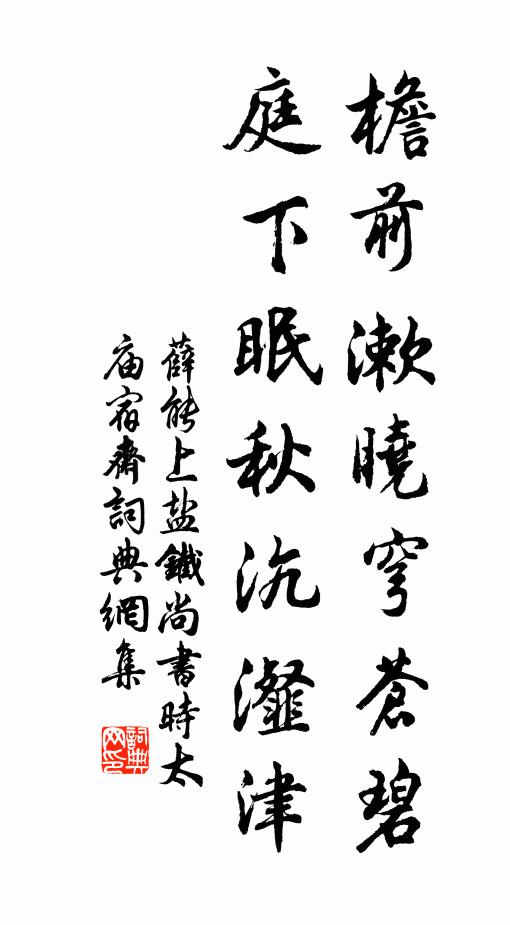 檐前漱曉穹蒼碧
庭下眠秋沆瀣津
薛能上盐鐵尚書時太
庙宿齋詞典網集
詞典
网印